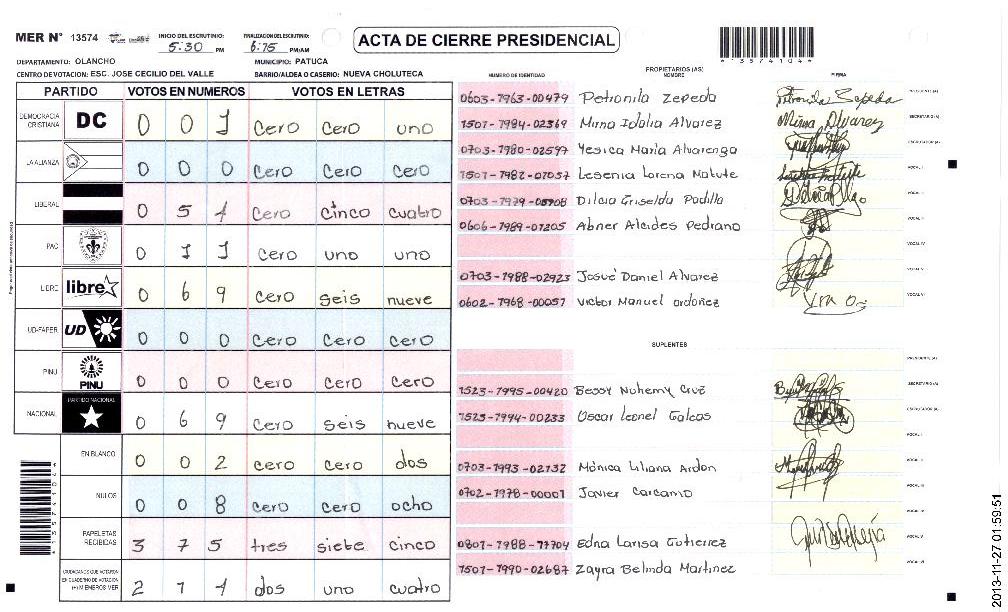 MER N° 13574 INICIO DEL ESCRUTINIO: 5:30 PM FINALIZACION DEL ESCRUTINIO: 6:15 PM/AM ACTA DE CIERRE PRESIDENCIAL
13574104
DEPARTAMENTO: OLANCHO MUNICIPIO: PATUCA
CENTRO DE VOTACION: ESC. JOSE CECILIO DEL VALLE BARRIO/ALDEA O CASERIO: NUEVA CHOLUTECA
PARTIDO VOTOS EN NUMEROS VOTOS EN LETRAS
DEMOCRACIA CRISTIANA DC 0 0 1 cero cero uno
LA ALIANZA 0 0 0 cero cero cero
LIBERAL 0 5 4 cero cinco cuatro
PAC 0 1 1 cero uno uno
LIBRE libre 0 6 9 cero seis nueve
UD-FAPER UD 0 0 0 cero cero cero
PINU PINU 0 0 0 cero cero cero
NACIONAL PARTIDO NACIONAL 0 6 9 cero seis nueve
EN BLANCO 0 0 2 cero cero dos
NULOS 0 0 8 cero cero ocho
PAPELETAS RECIBIDAS 3 7 5 tres siete cinco
CIUDADANOS QUE VOTARON EN CUADERNO DE VOTACION (+) MIEMBROS MER 2 1 4 dos uno cuatro
NUMERO DE IDENTIDAD PROPIETARIOS (AS) NOMBRE FIRMA
0603-1963-00479 Petronila Zepeda PRESIDENTE (A)
1501-1984-02369 Mirna Idalia Alvarez SECRETARIO (A)
0703-1980-02597 Yesica Maria Alvarenga ESCRUTADOR (A)
1501-1982-01057 Lesenia Lorena Matute VOCAL I
0703-1979-03908 Dilcia Griselda Padilla VOCAL II
0606-1989-01205 Abner Alcides Pedrano VOCAL III
VOCAL IV
0703-1988-02923 Josué Daniel Alvarez VOCAL V
0602-1968-00057 Victor Manuel ordoñez VOCAL VI
SUPLENTES
PRESIDENTE (A)
1523-1995-00420 Bessy Nohemy Cruz SECRETARIO (A)
1523-1994-00233 Oscar Leonel Galeas ESCRUTADOR (A)
VOCAL I
0703-1993-02132 Mónica Liliana Ardon VOCAL II
0702-1978-00001 Javier Carcamo VOCAL III
VOCAL IV
0801-1988-11104 Edna Larisa Gutierrez VOCAL V
1501-1990-02687 Zayra Belinda Martinez VOCAL VI
2013-11-27 01:59:51